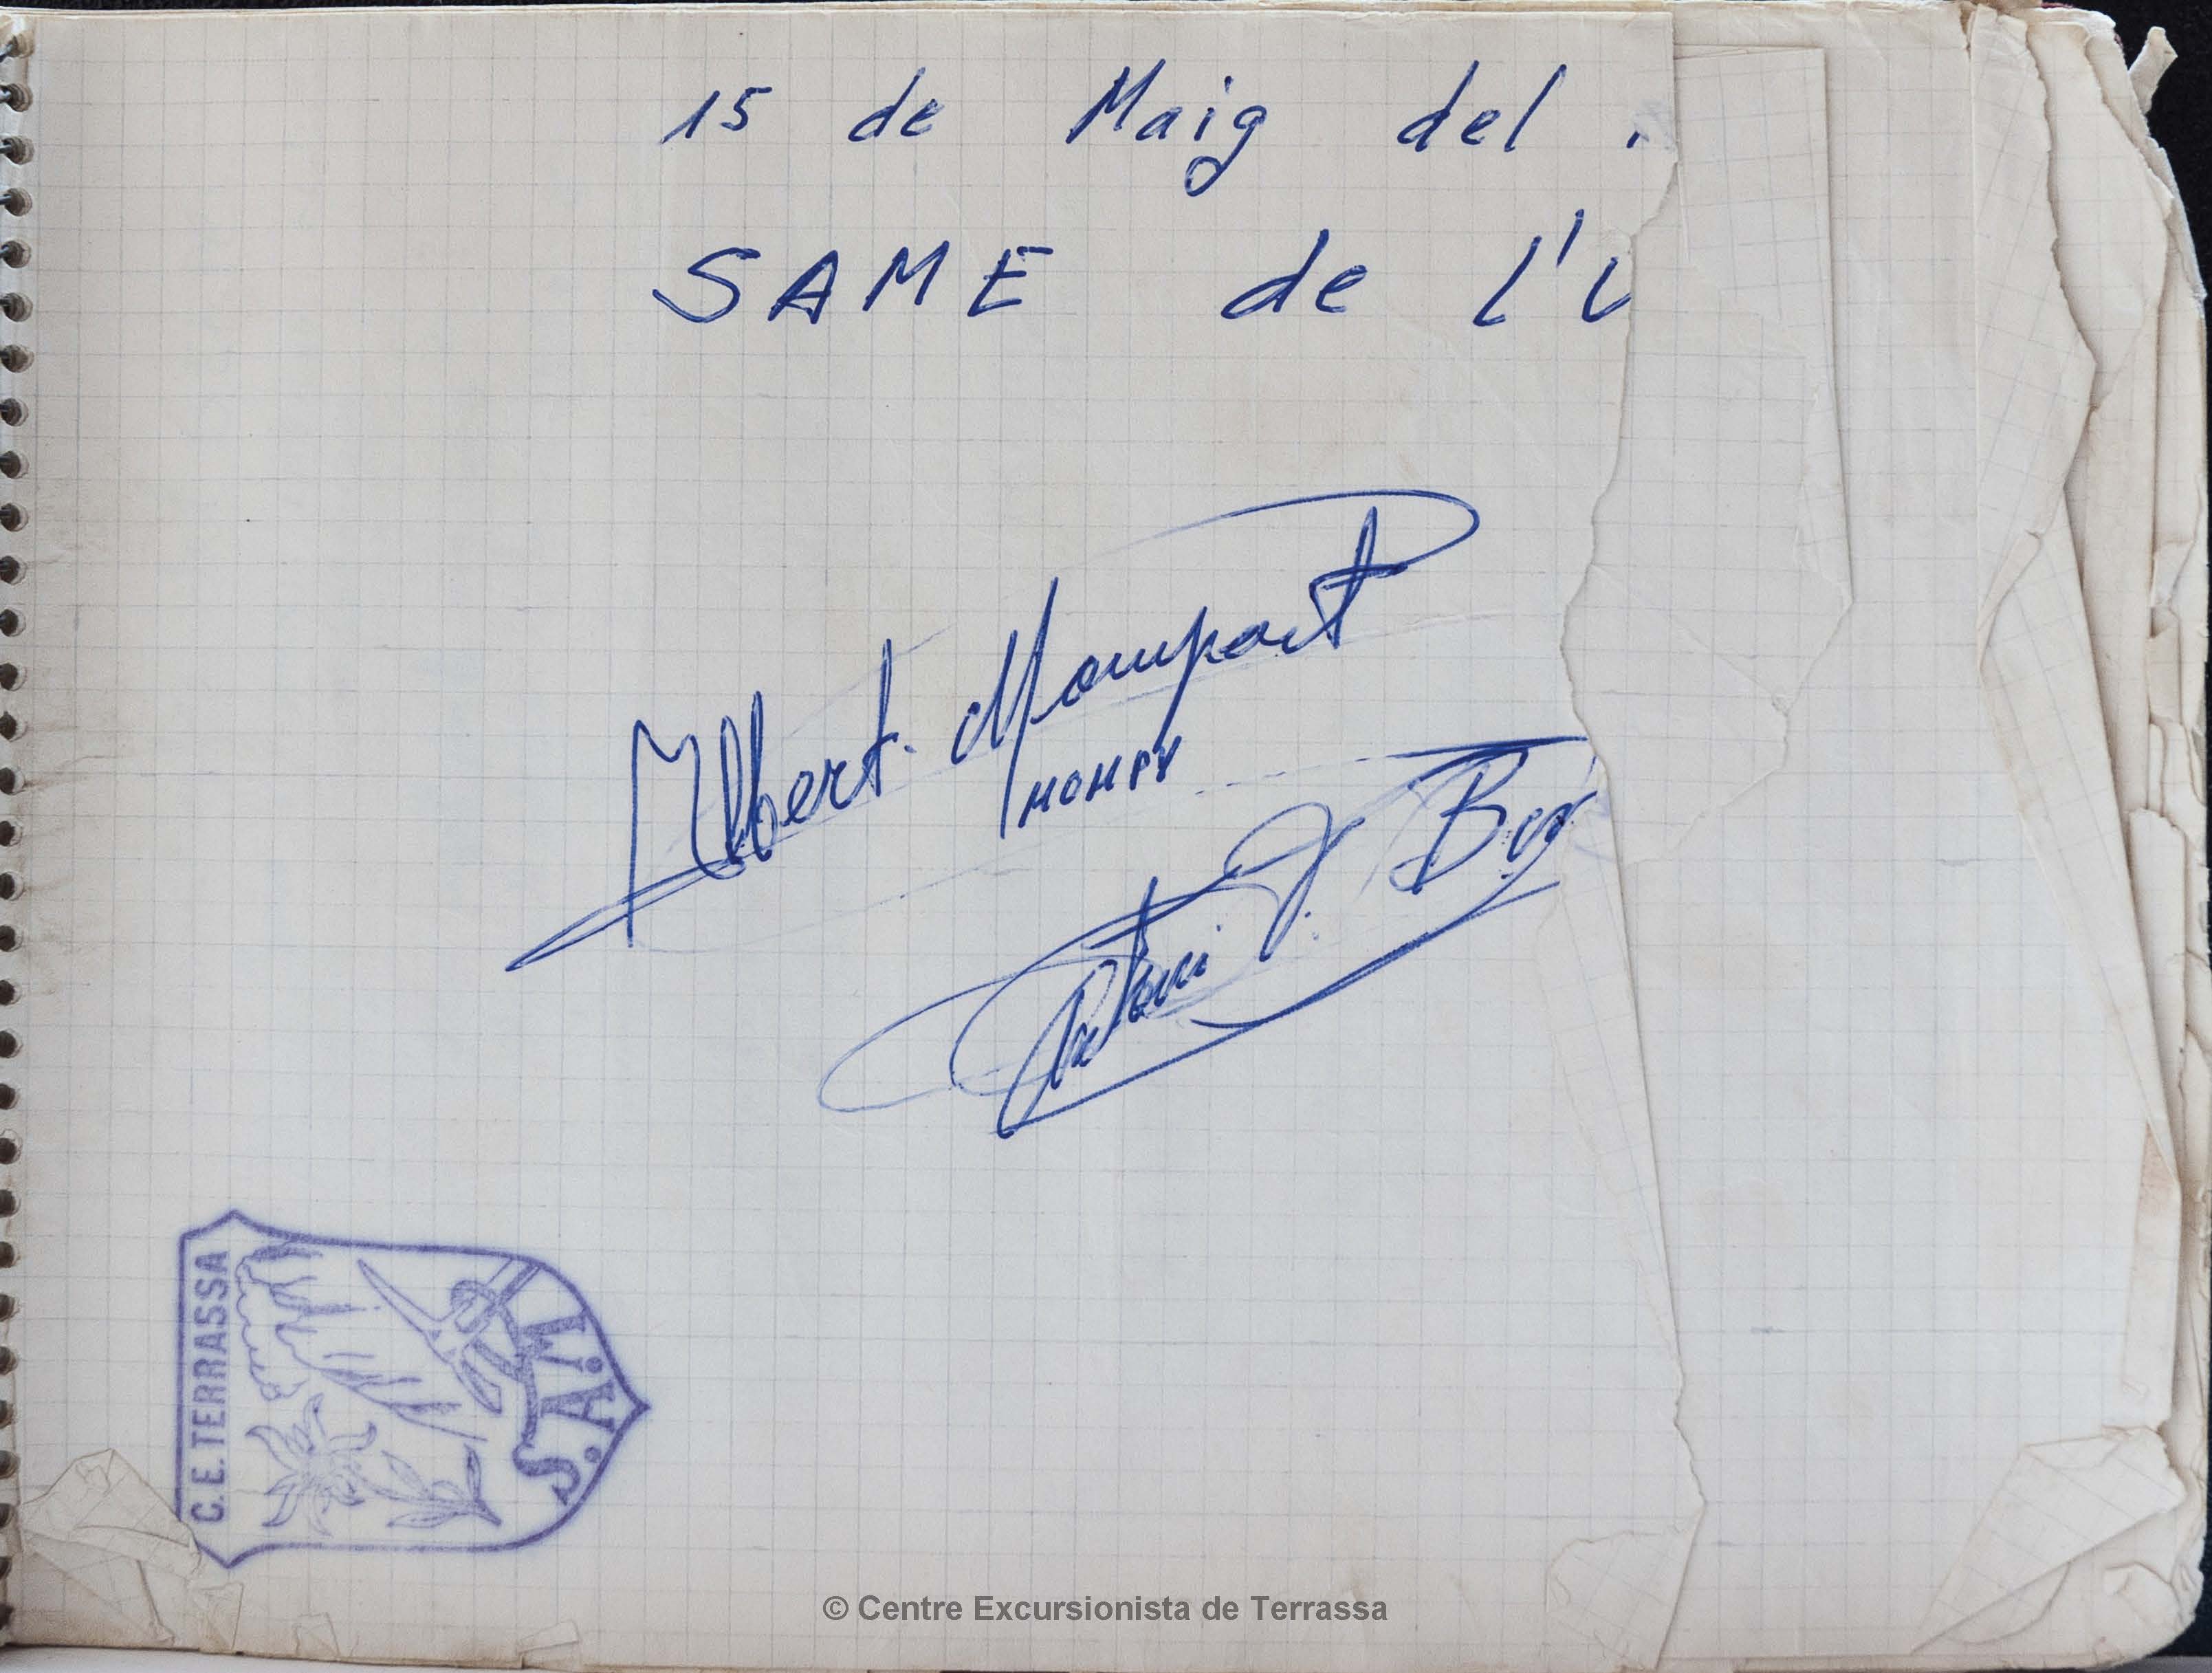 15 de Maig del
SAME de l'
Albert Mompart
MOMPY
Antoni J.
C.E. TERRASSA
S.A.M.
© Centre Excursionista de Terrassa